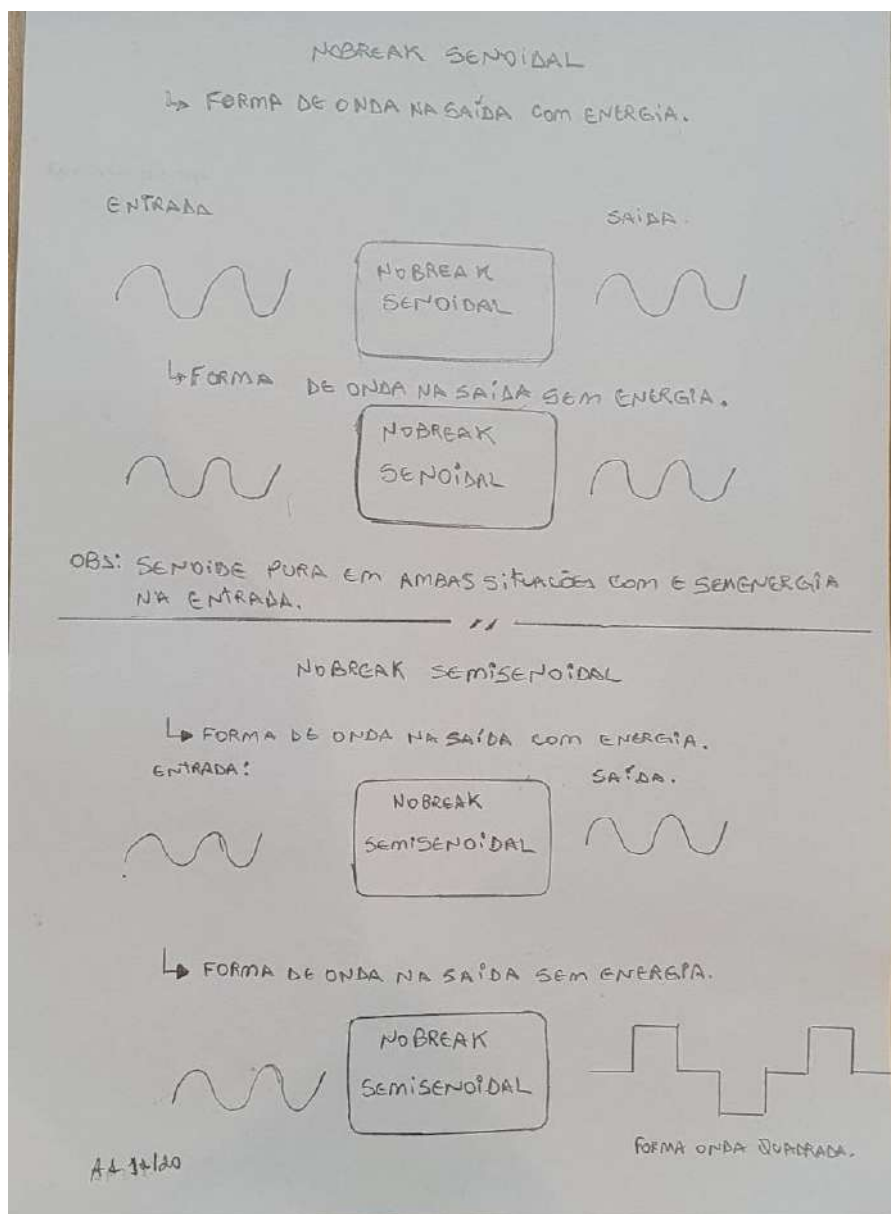 NOBREAK SENOIDAL
↳ FORMA DE ONDA NA SAÍDA COM ENERGIA.
ENTRADA
SAIDA.
NOBREAK
SENOIDAL
↳ FORMA DE ONDA NA SAÍDA SEM ENERGIA.
NOBREAK
SENOIDAL
OBS: SENOIDE PURA EM AMBAS SITUAÇÕES COM E SEM ENERGIA
NA ENTRADA.
NOBREAK SEMISENOIDAL
↳ FORMA DE ONDA NA SAÍDA COM ENERGIA.
ENTRADA:
SAÍDA.
NOBREAK
SEMISENOIDAL
↳ FORMA DE ONDA NA SAÍDA SEM ENERGIA.
NOBREAK
SEMISENOIDAL
FORMA ONDA QUADRADA.